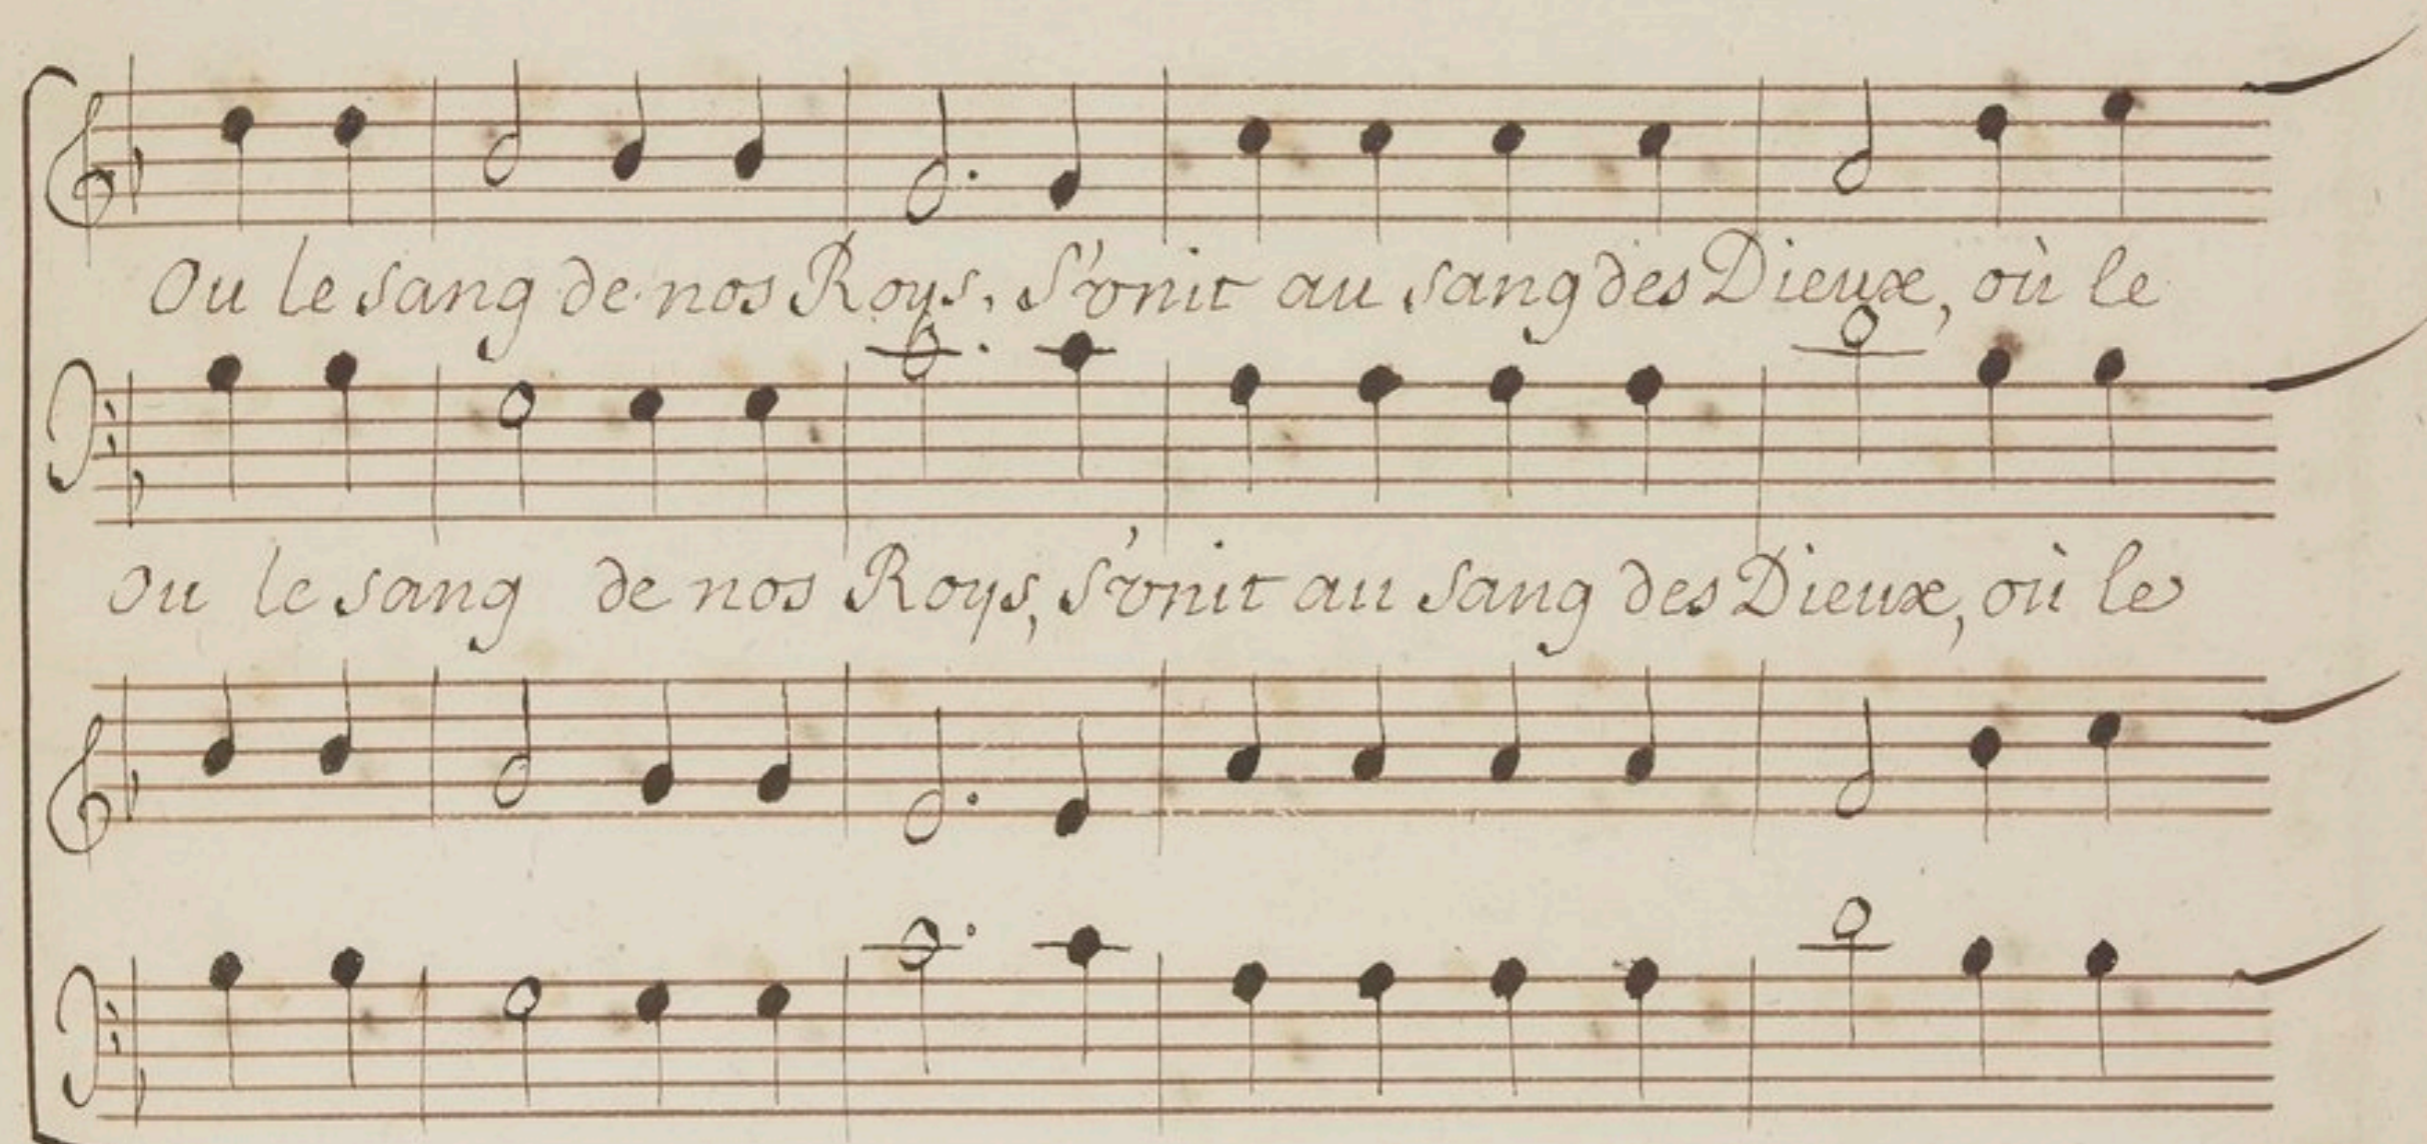 Ou le sang de nos Roys, S'vnit au sang des Dieux, où le
ou le sang de nos Roys, s'vnit au sang des Dieux, où le